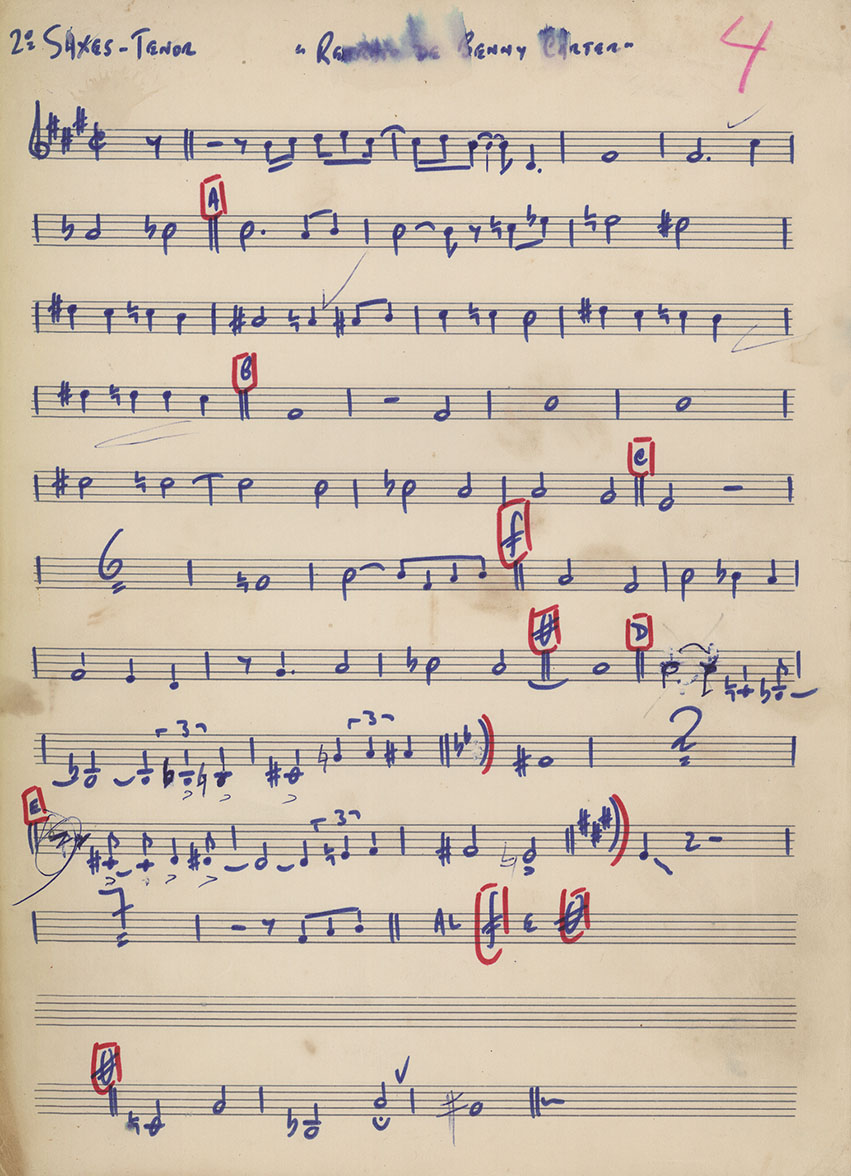 2º SAXES-TENOR " DE BENNY CARTER" 4
A
B
C
6
D
3 3 2
E
3 2
7 AL E